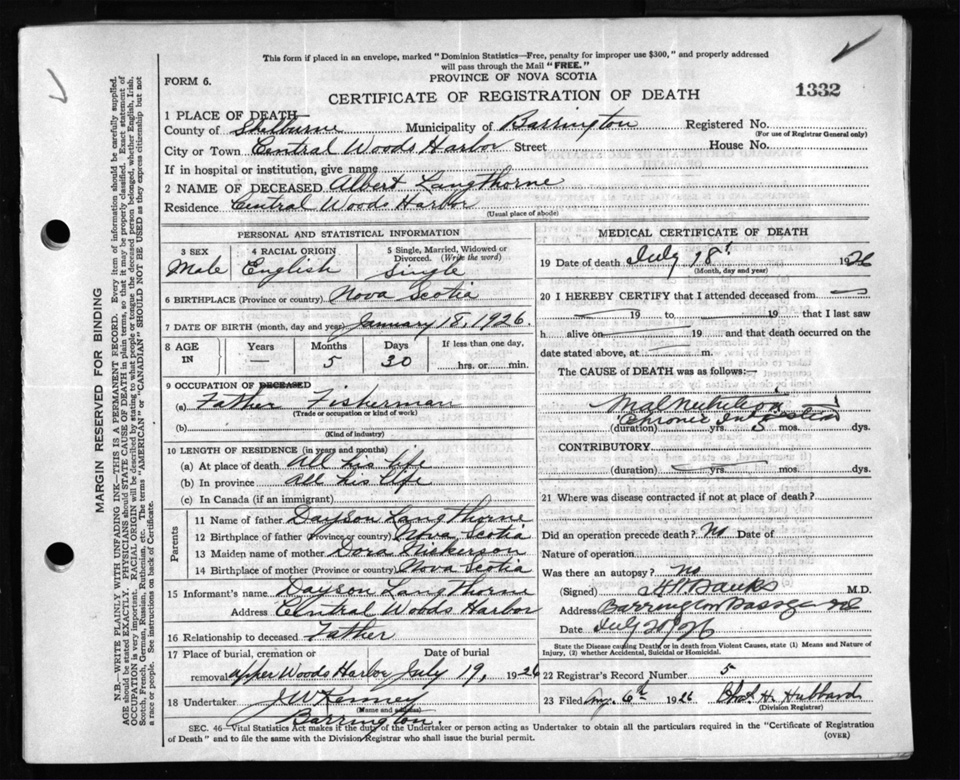 This form if placed in an envelope, marked "Dominion Statistics—Free, penalty for improper use $300," and properly addressed
will pass through the Mail "FREE."
FORM 6.
PROVINCE OF NOVA SCOTIA
CERTIFICATE OF REGISTRATION OF DEATH
1332
1 PLACE OF DEATH
County of Shelburne Municipality of Barrington Registered No.
(For use of Registrar General only)
City or Town Central Woods Harbor Street House No.
If in hospital or institution, give name
2 NAME OF DECEASED Albert Langthorne
Residence Central Woods Harbor
(Usual place of abode)
PERSONAL AND STATISTICAL INFORMATION
3 SEX 4 RACIAL ORIGIN 5 Single, Married, Widowed or
Divorced. (Write the word)
Male English Single
6 BIRTHPLACE (Province or country) Nova Scotia
7 DATE OF BIRTH (month, day and year) January 18, 1926.
8 AGE IN Years Months Days If less than one day.
— 5 30 hrs. or min.
9 OCCUPATION OF DECEASED
(a) Father Fisherman
(Trade or occupation or kind of work)
(b)
(Kind of industry)
10 LENGTH OF RESIDENCE (in years and months)
(a) At place of death All his life
(b) In province All his life
(c) In Canada (if an immigrant)
Parents
11 Name of father Dayson Langthorne
12 Birthplace of father (Province or country) Nova Scotia
13 Maiden name of mother Dora Nickerson
14 Birthplace of mother (Province or country) Nova Scotia
15 Informant's name Dayson Langthorne
Address Central Woods Harbor
16 Relationship to deceased Father
17 Place of burial, cremation or Date of burial
removal Upper Woods Harbor July 19, 1926
18 Undertaker J W Kenney
(Name and address)
Barrington.
MEDICAL CERTIFICATE OF DEATH
19 Date of death July 18 1926
(Month, day and year)
20 I HEREBY CERTIFY that I attended deceased from
19 to 19 that I last saw
h alive on 19 and that death occurred on
date stated above, at m.
The CAUSE of DEATH was as follows:—
Malnutrition
Chronic
(duration) yrs. 5 mos. dys.
CONTRIBUTORY
(duration) yrs. mos. dys.
21 Where was disease contracted if not at place of death?
Did an operation precede death? No Date of
Nature of operation
Was there an autopsy? No
(Signed) Banks M.D.
Address Barrington Passage
Date July 20/26
State the Disease causing Death; or in death from Violent Causes, state (1) Means and Nature of
Injury, (2) whether Accidental, Suicidal or Homicidal.
22 Record Number 5
23 Filed Aug. 6th 1926 Thos. H. Hubbard
(Division Registrar)
SEC. 46—Vital Statistics Act makes it the duty of the Undertaker or person acting as Undertaker to obtain all the particulars required in the "Certificate of Registration
of Death" and to file the same with the Division Registrar who shall issue the burial permit.
(OVER)
MARGIN RESERVED FOR BINDING
N.B.—WRITE PLAINLY WITH UNFADING INK—THIS IS A PERMANENT RECORD. Every item of information should be carefully supplied.
AGE should be stated EXACTLY. PHYSICIANS should STATE CAUSE OF DEATH in plain terms, so that it may be properly classified. Exact statement of
OCCUPATION is very important. RACIAL ORIGIN will be described by stating to what people or tongue the deceased person belonged, whether English, Irish,
Scotch, French, German, Russian, Ruthenian, etc. The terms "AMERICAN" or "CANADIAN" SHOULD NOT BE USED as they express citizenship but not
a race or people. See instructions on back of Certificate.